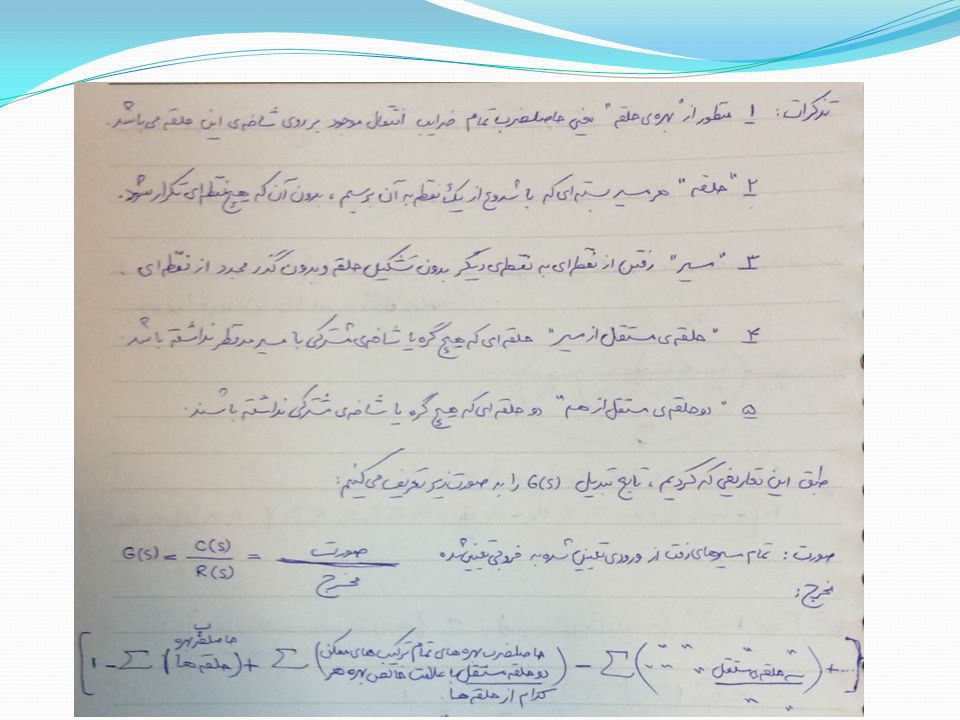 تذکرات: ۱_ منظور از "بهره‌ی حلقه" یعنی حاصلضرب تمام ضرایب انتقال موجود بر روی شاخه‌ی این حلقه می‌باشد.
۲_ "حلقه" هر مسیر بسته‌ای که با شروع از یک نقطه به آن برسیم، بدون آن که هیچ نقطه‌ای تکرار شود.
۳_ "مسیر" رفتن از نقطه‌ای به نقطه‌ی دیگر بدون تشکیل حلقه و بدون گذر مجدد از نقطه‌ای.
۴_ "حلقه‌ی مستقل از مسیر" حلقه‌ای که هیچ گره یا شاخه‌ی مشترکی با مسیر مدنظر نداشته باشد.
۵_ "دو حلقه‌ی مستقل از هم" دو حلقه‌ای که هیچ گره یا شاخه‌ی مشترکی نداشته باشند.
طبق این تعاریفی که کردیم، تابع تبدیل G(s) را به صورت زیر تعریف می‌کنیم:
صورت: تمام مسیرهای رفت از ورودی تعیین شده به خروجی تعیین شده
G(s) = C(s) / R(s) = صورت / مخرج
مخرج:
[1 - Σ (حاصلضرب بهره حلقه‌ها) + Σ (حاصلضرب بهره‌های تمام ترکیب‌های ممکن دو حلقه مستقل با علامت خالص بهره هر کدام از حلقه‌ها.) - Σ (" " " سه حلقه مستقل " " ") + ...]